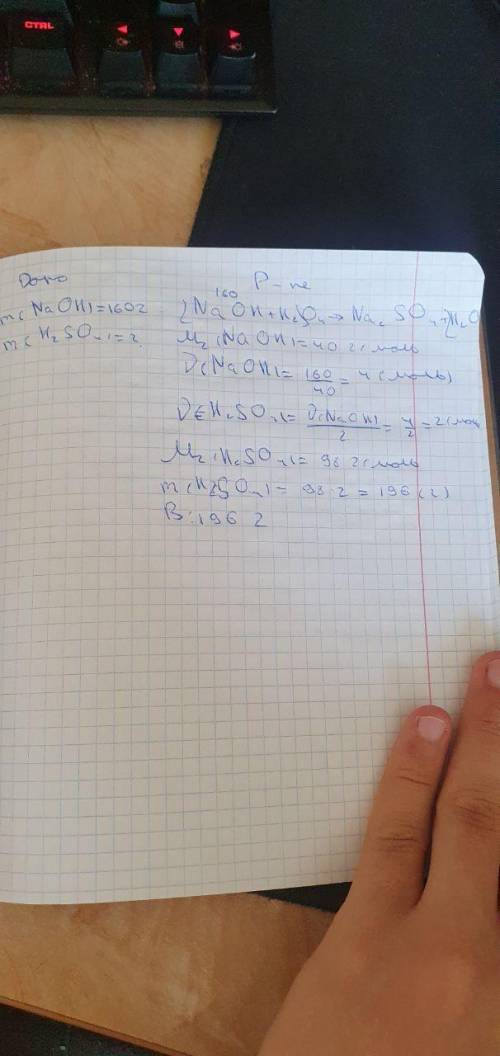 CTRL
Дано
m(NaOH)=160г
m(H2SO4)=?
Р-не
160
2NaOH+H2SO4→Na2SO4+2H2O
Mr(NaOH)=40 г/моль
ν(NaOH)=160/40=4(моль)
ν(H2SO4)=ν(NaOH)/2=4/2=2(моль)
Mr(H2SO4)=98 г/моль
m(H2SO4)=98·2=196(г)
В:196 г